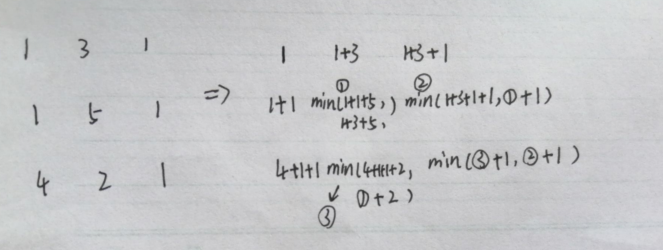 1 3 1 1 1+3 1+3+1
① ②
1 5 1 => 1+1 min(1+1+5, ) min(1+3+1+1,①+1)
1+3+5,
4 2 1 4+1+1 min(4+1+1+2, min(③+1,②+1)
↙ ①+2)
③